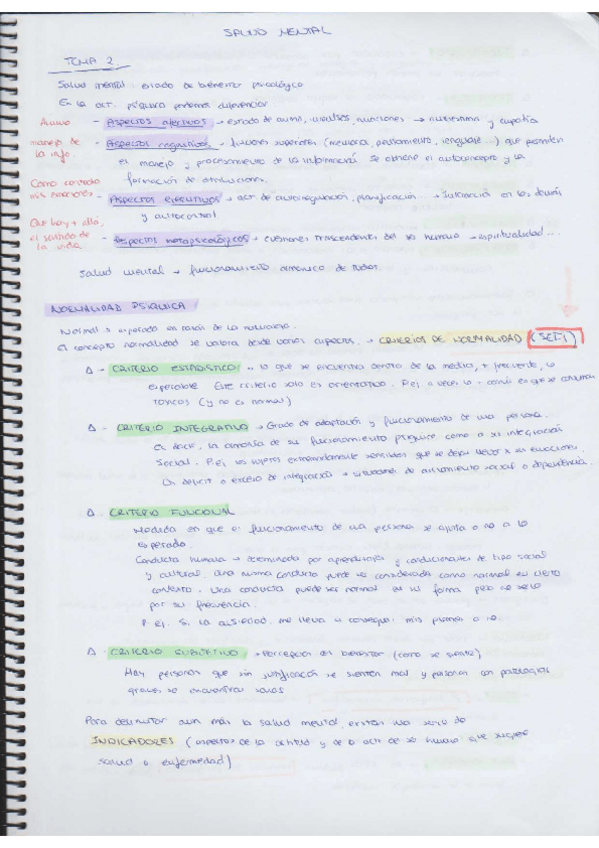 SALUD MENTAL
TEMA 2.
Salud mental: estado de bienestar psicológico
En la act. psíquica podemos diferenciar
Animo - Aspectos afectivos → estado de animo, impulsos, emociones → autoestima y empatia
manejo de la info. - Aspectos cognitivos → funciones superiores (memoria, pensamiento, lenguaje...) que permiten
el manejo y procesamiento de la información. Se obtiene el autoconcepto y la
formación de atribuciones.
Como controlo mis emociones - Aspectos ejecutivos → act de autorregulación, planificación... → Interacción en los demás
y autocontrol
Que hay + allá, el sentido de la vida - Aspectos metapsicológicos → cuestiones trascendentes del ser humano → espiritualidad...
Salud mental → funcionamiento armonico de todos.
NORMALIDAD PSIQUICA
Normal: esperado en razón de la naturaleza.
El concepto normalidad se valora desde varios aspectos. → CRITERIOS DE NORMALIDAD (SEFI)
Δ - CRITERIO ESTADÍSTICO → lo que se encuentra dentro de la media, + frecuente, lo
esperable. Este criterio solo es orientativo. P.ej. a veces lo + común es que se consuman
toxicos (y no es normal)
Δ - CRITERIO INTEGRATIVO → Grado de adaptación y funcionamiento de una persona.
Es decir, la armonía de su funcionamiento psíquico como a su integración
social. P.ej. los sujetos extremadamente sensibles que se dejan llevar x sus emociones.
Un deficit o exceso de integración → situaciones de aislamiento social o dependencia.
Δ - CRITERIO FUNCIONAL
Medida en que el funcionamiento de una persona se ajusta o no a lo
esperado.
Conducta humana → determinada por aprendizajes y condicionantes de tipo social
y cultural. Una misma conducta puede ser considerada como normal en cierto
contexto. Una conducta puede ser normal en su forma pero no serlo
por su frecuencia.
P. ej. Si la ansiedad me lleva a conseguir mis planes o no.
Δ - CRITERIO SUBJETIVO → Percepción del bienestar (como se siente)
Hay personas que sin justificación se sienten mal y personas con patologías
graves se encuentran sanas
Para delimitar aun más la salud mental existen una serie de
INDICADORES (aspectos de la actitud y de la act. de ser humano que sugiere
salud o enfermedad)